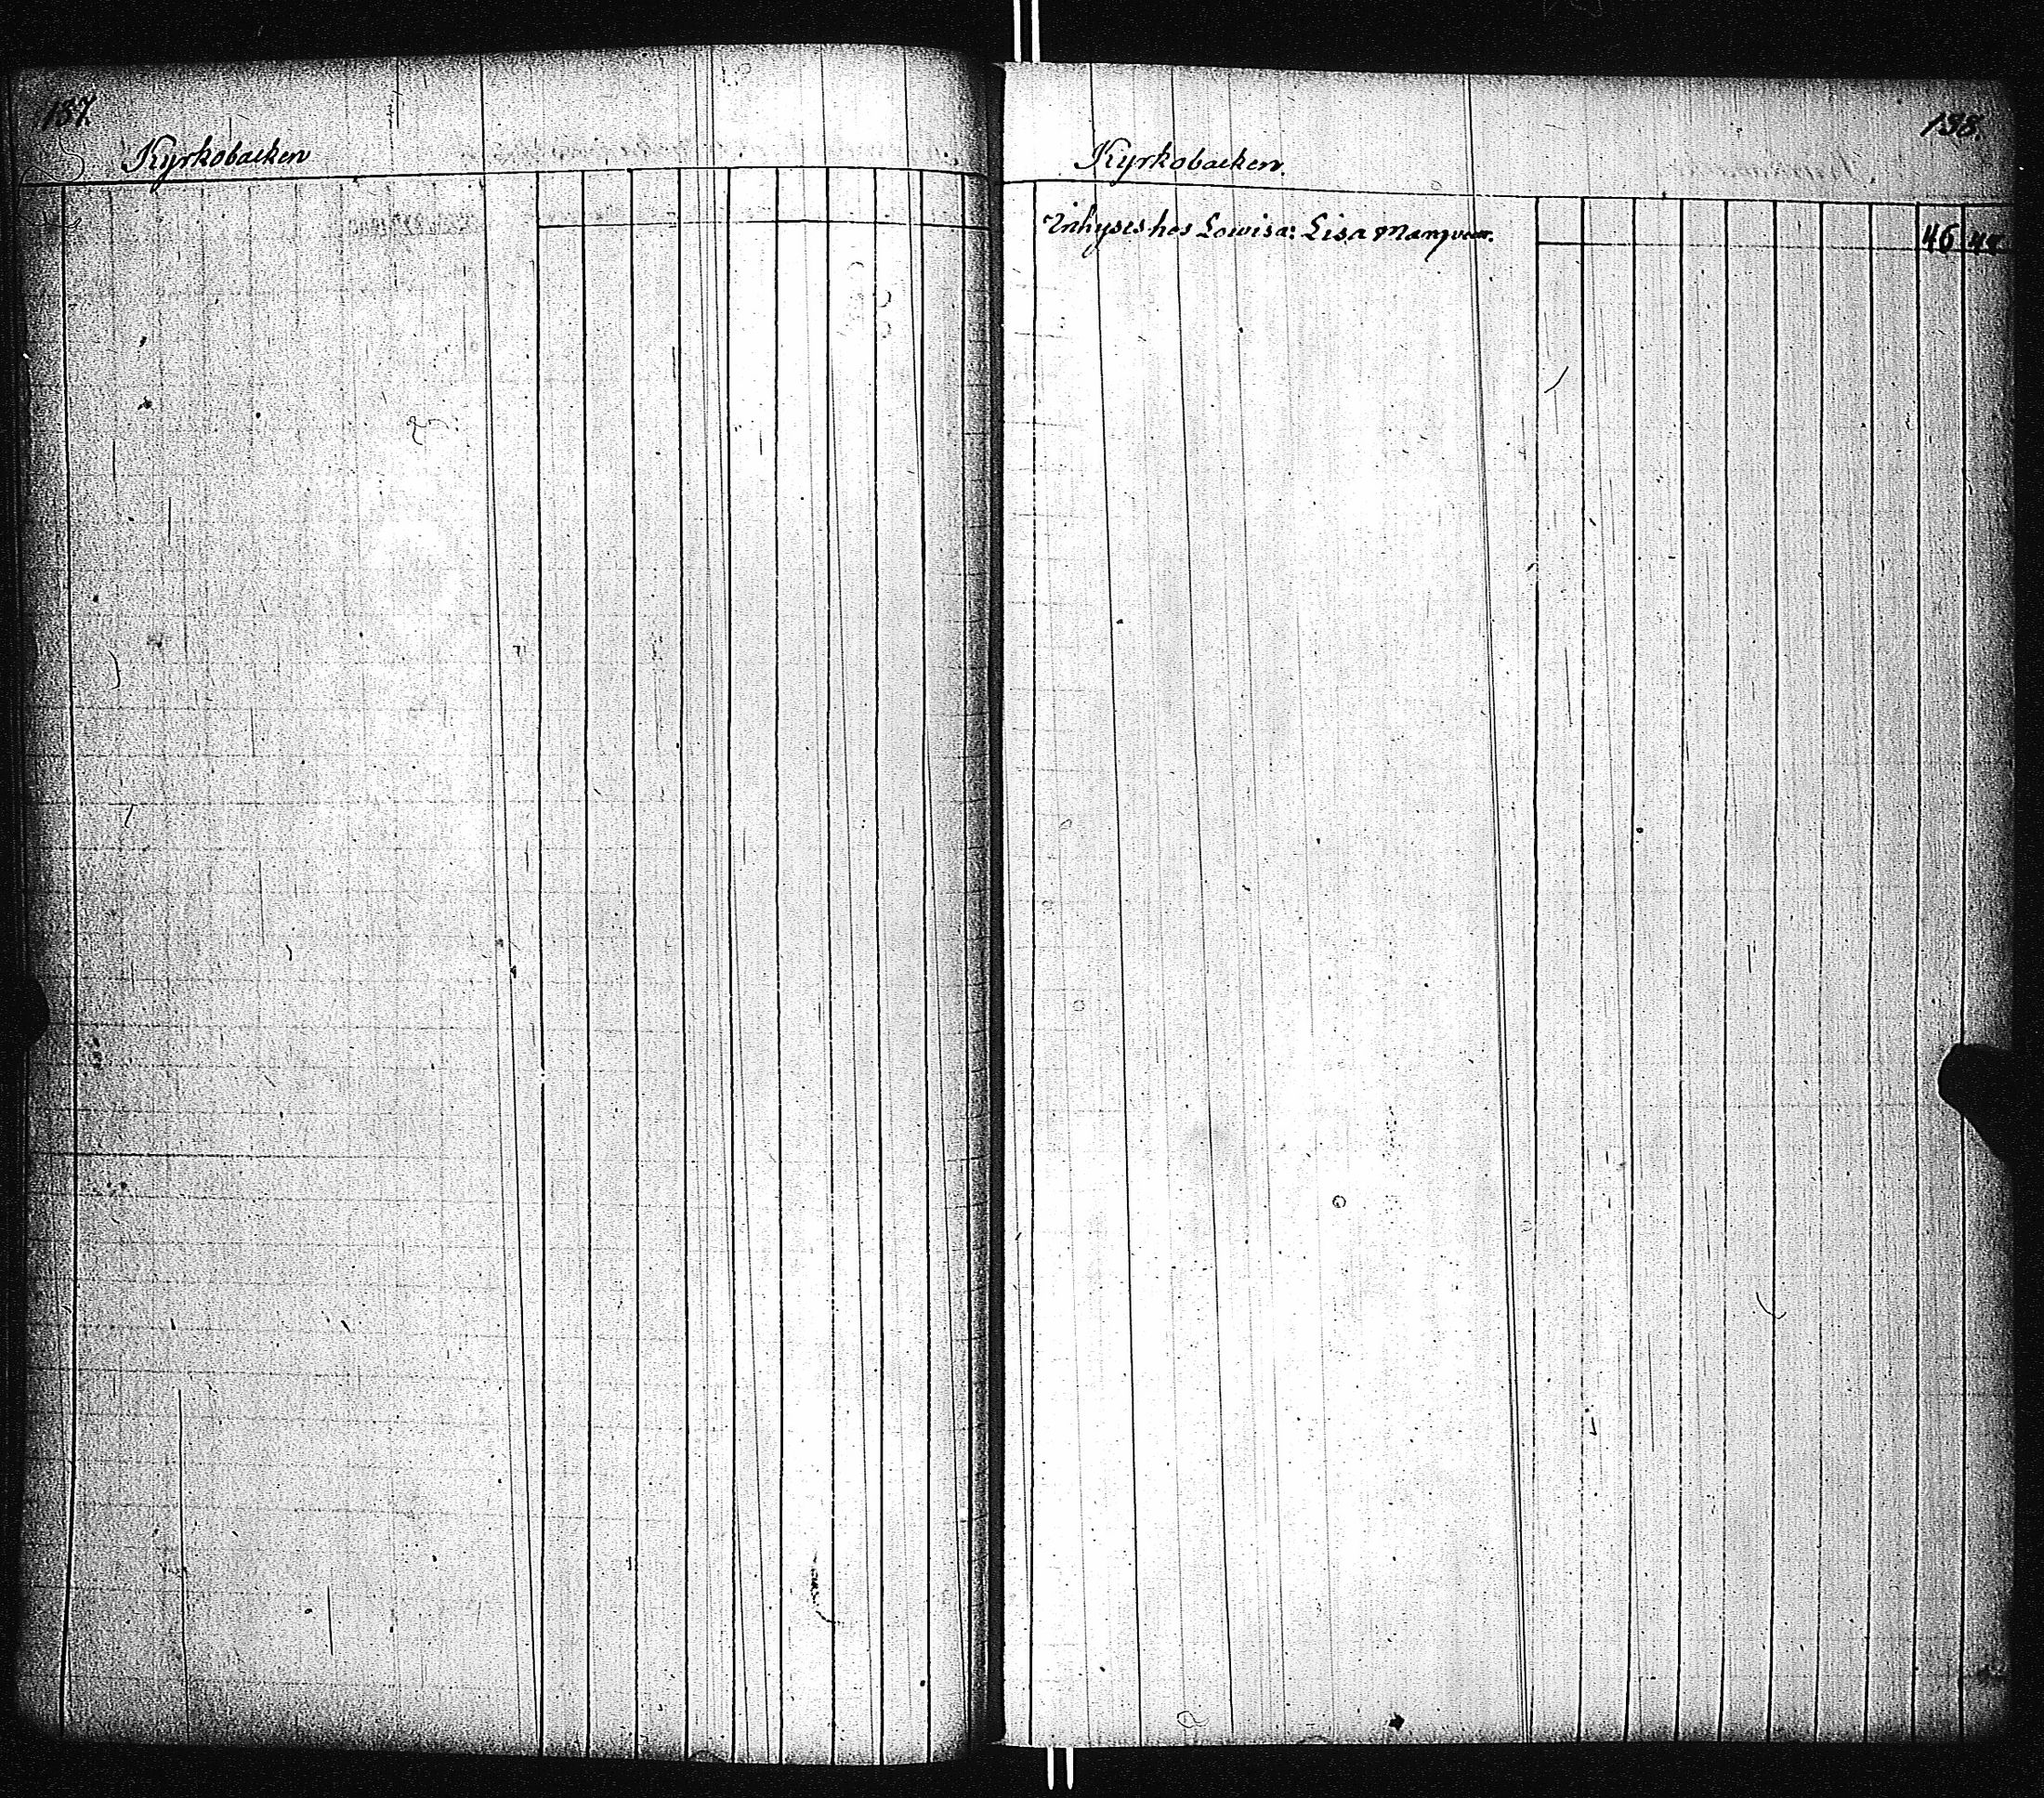 137.
Kyrkobacken
138.
Kyrkobacken.
Inhyses hos Lowisa: Lisa 46